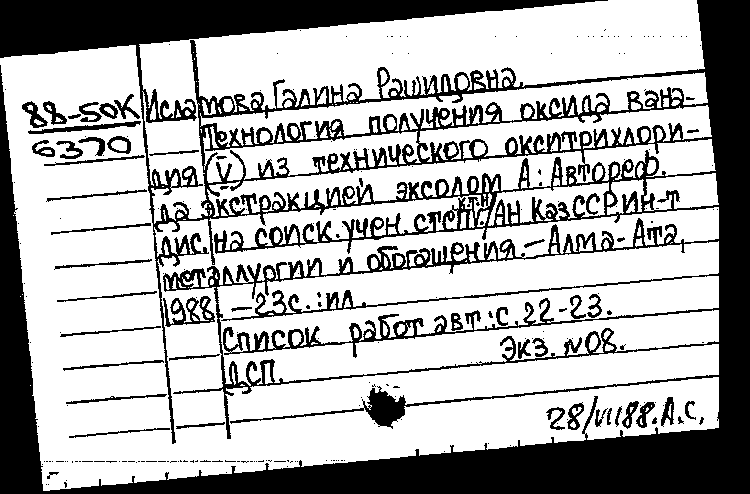 88-50К
6370
Исламова, Галина Рашидовна.
Технология получения оксида вана-
дия (V) из технического окситрихлори-
да экстракцией эксолом А: Автореф.
дис. на соиск. учен. степ. к.т.н/АН КазССР, Ин-т
металлургии и обогащения. – Алма-Ата,
1988. – 23с.: ил.
Список работ авт.: с. 22-23.
ДСП. Экз. №08.
28/VII 88. А.С.